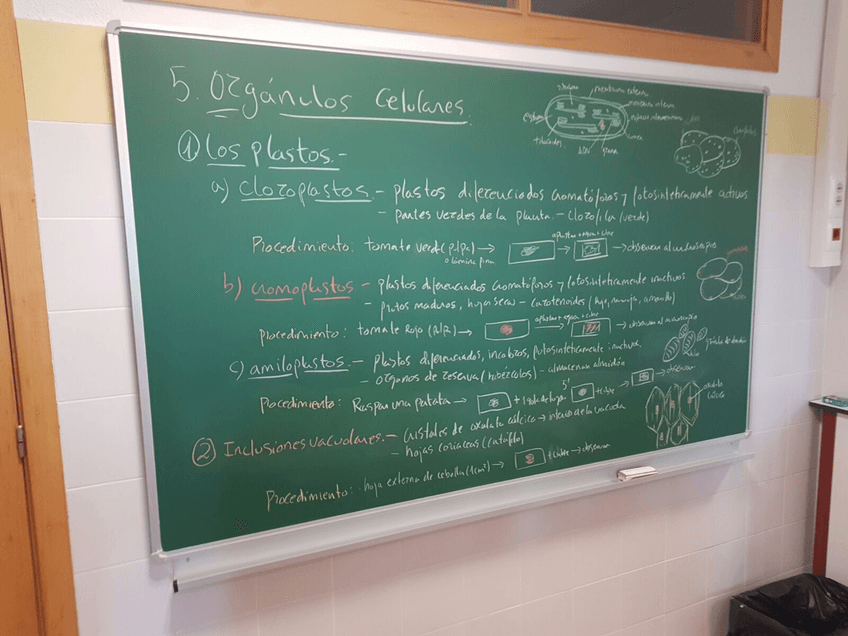 5. Orgánulos celulares.
① Los plastos.-
a) Cloroplastos - plastos diferenciados cromatóforos y fotosintéticamente activos
- partes verdes de la planta. - clorofila (verde)
Procedimiento: tomate verde (pulpa) → aplastar + agua + cubre → observar al microscopio
o lámina fina
b) Cromoplastos - plastos diferenciados cromatóforos y fotosintéticamente inactivos
- frutos maduros, hojas secas - carotenoides (rojo, naranja, amarillo)
Procedimiento: tomate rojo (pulpa) → aplastar + agua + cubre → observar al microscopio
c) amiloplastos. - plastos diferenciados, incoloros, fotosintéticamente inactivos.
- órganos de reserva (tubérculos) - almacenan almidón
Procedimiento: Raspar una patata → + 1 gota de lugol 5' + cubre → observar
② Inclusiones vacuolares. - cristales de oxalato cálcico → interior de la vacuola
- hojas coriáceas (catáfilo)
Procedimiento: hoja externa de cebolla (1cm²) → + cubre → observar
membrana externa
membrana interna
espacio intermembrana
estroma
tilacoides
grana
oxalato cálcico